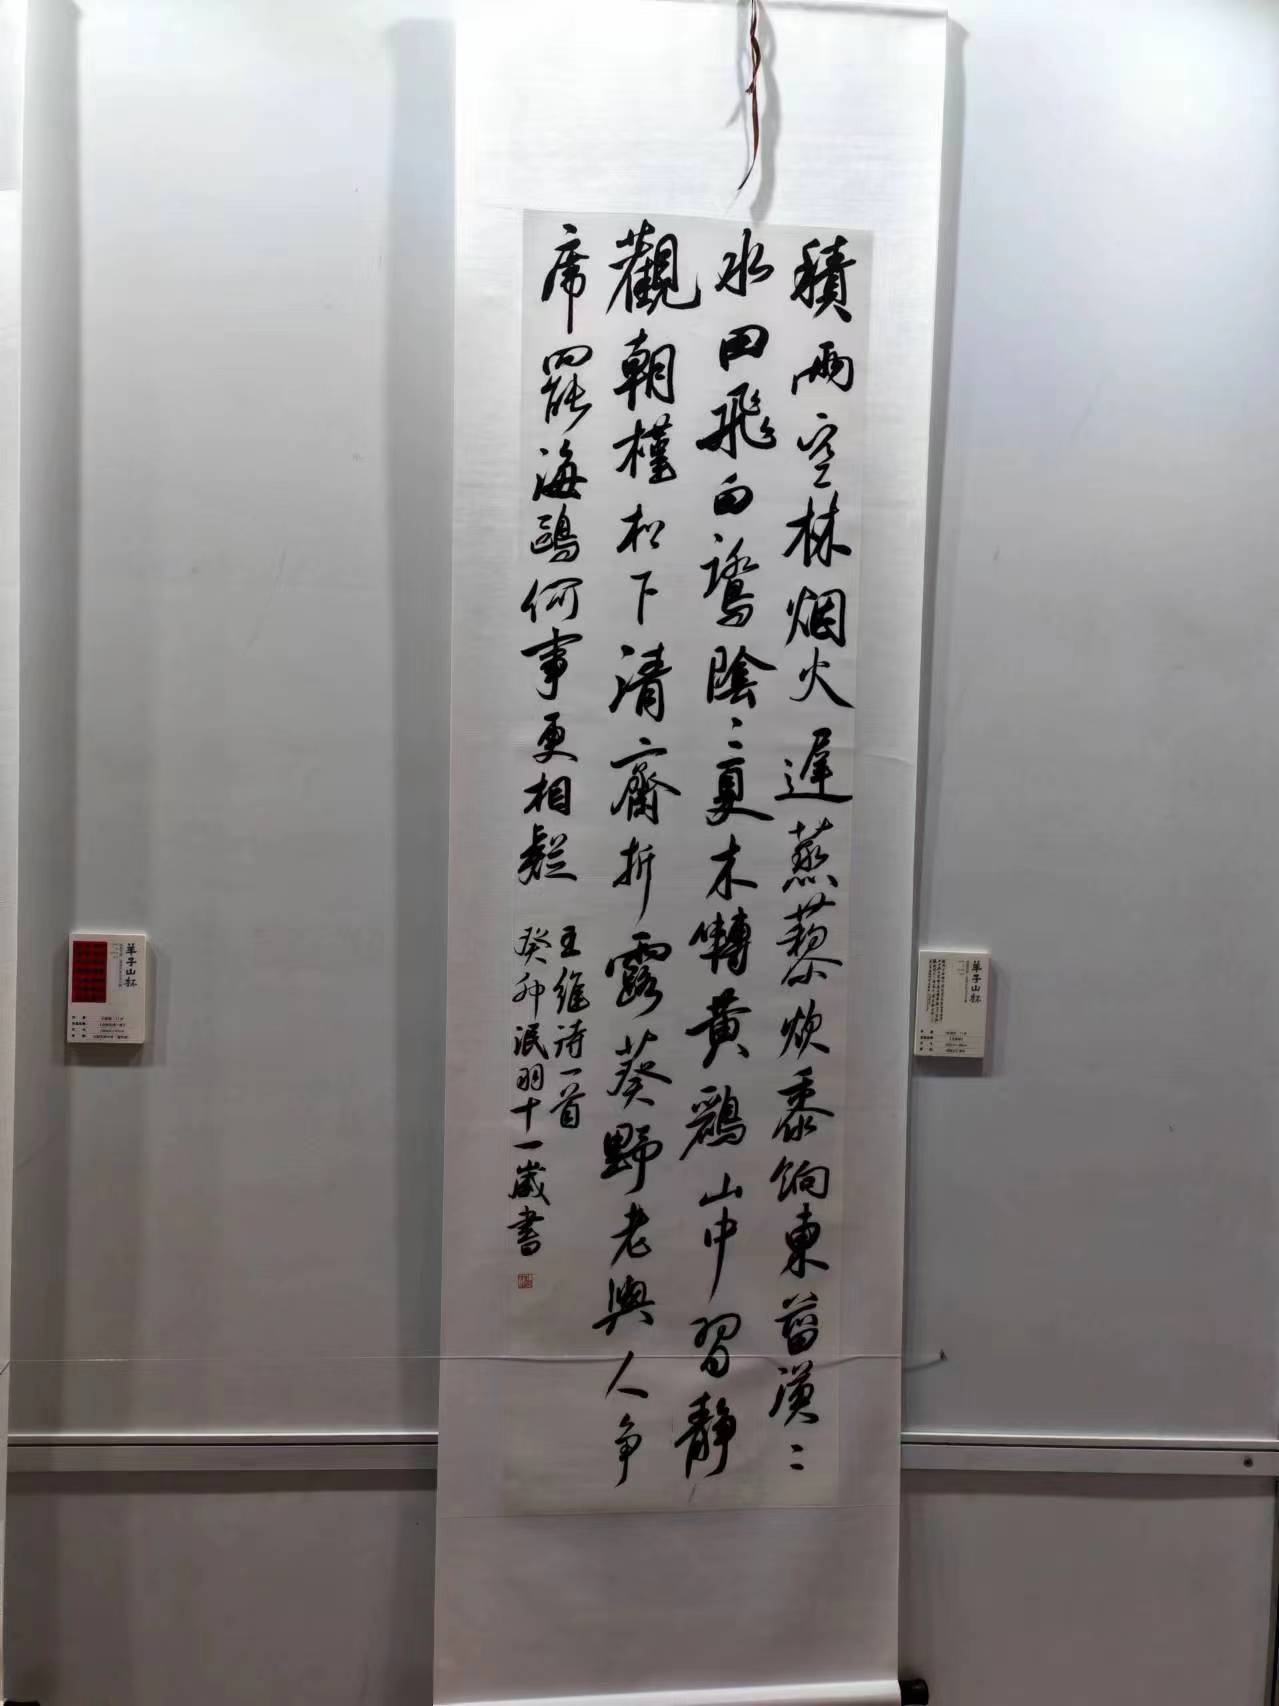 積雨空林烟火遲蒸藜炊黍餉東菑漠〻
水田飛白鷺陰〻夏木囀黄鸝山中習静
觀朝槿松下清齋折露葵野老與人争
席罷海鷗何事更相疑
王維诗一首
癸卯泯羽十一歲書
羊子山杯
羊子山杯